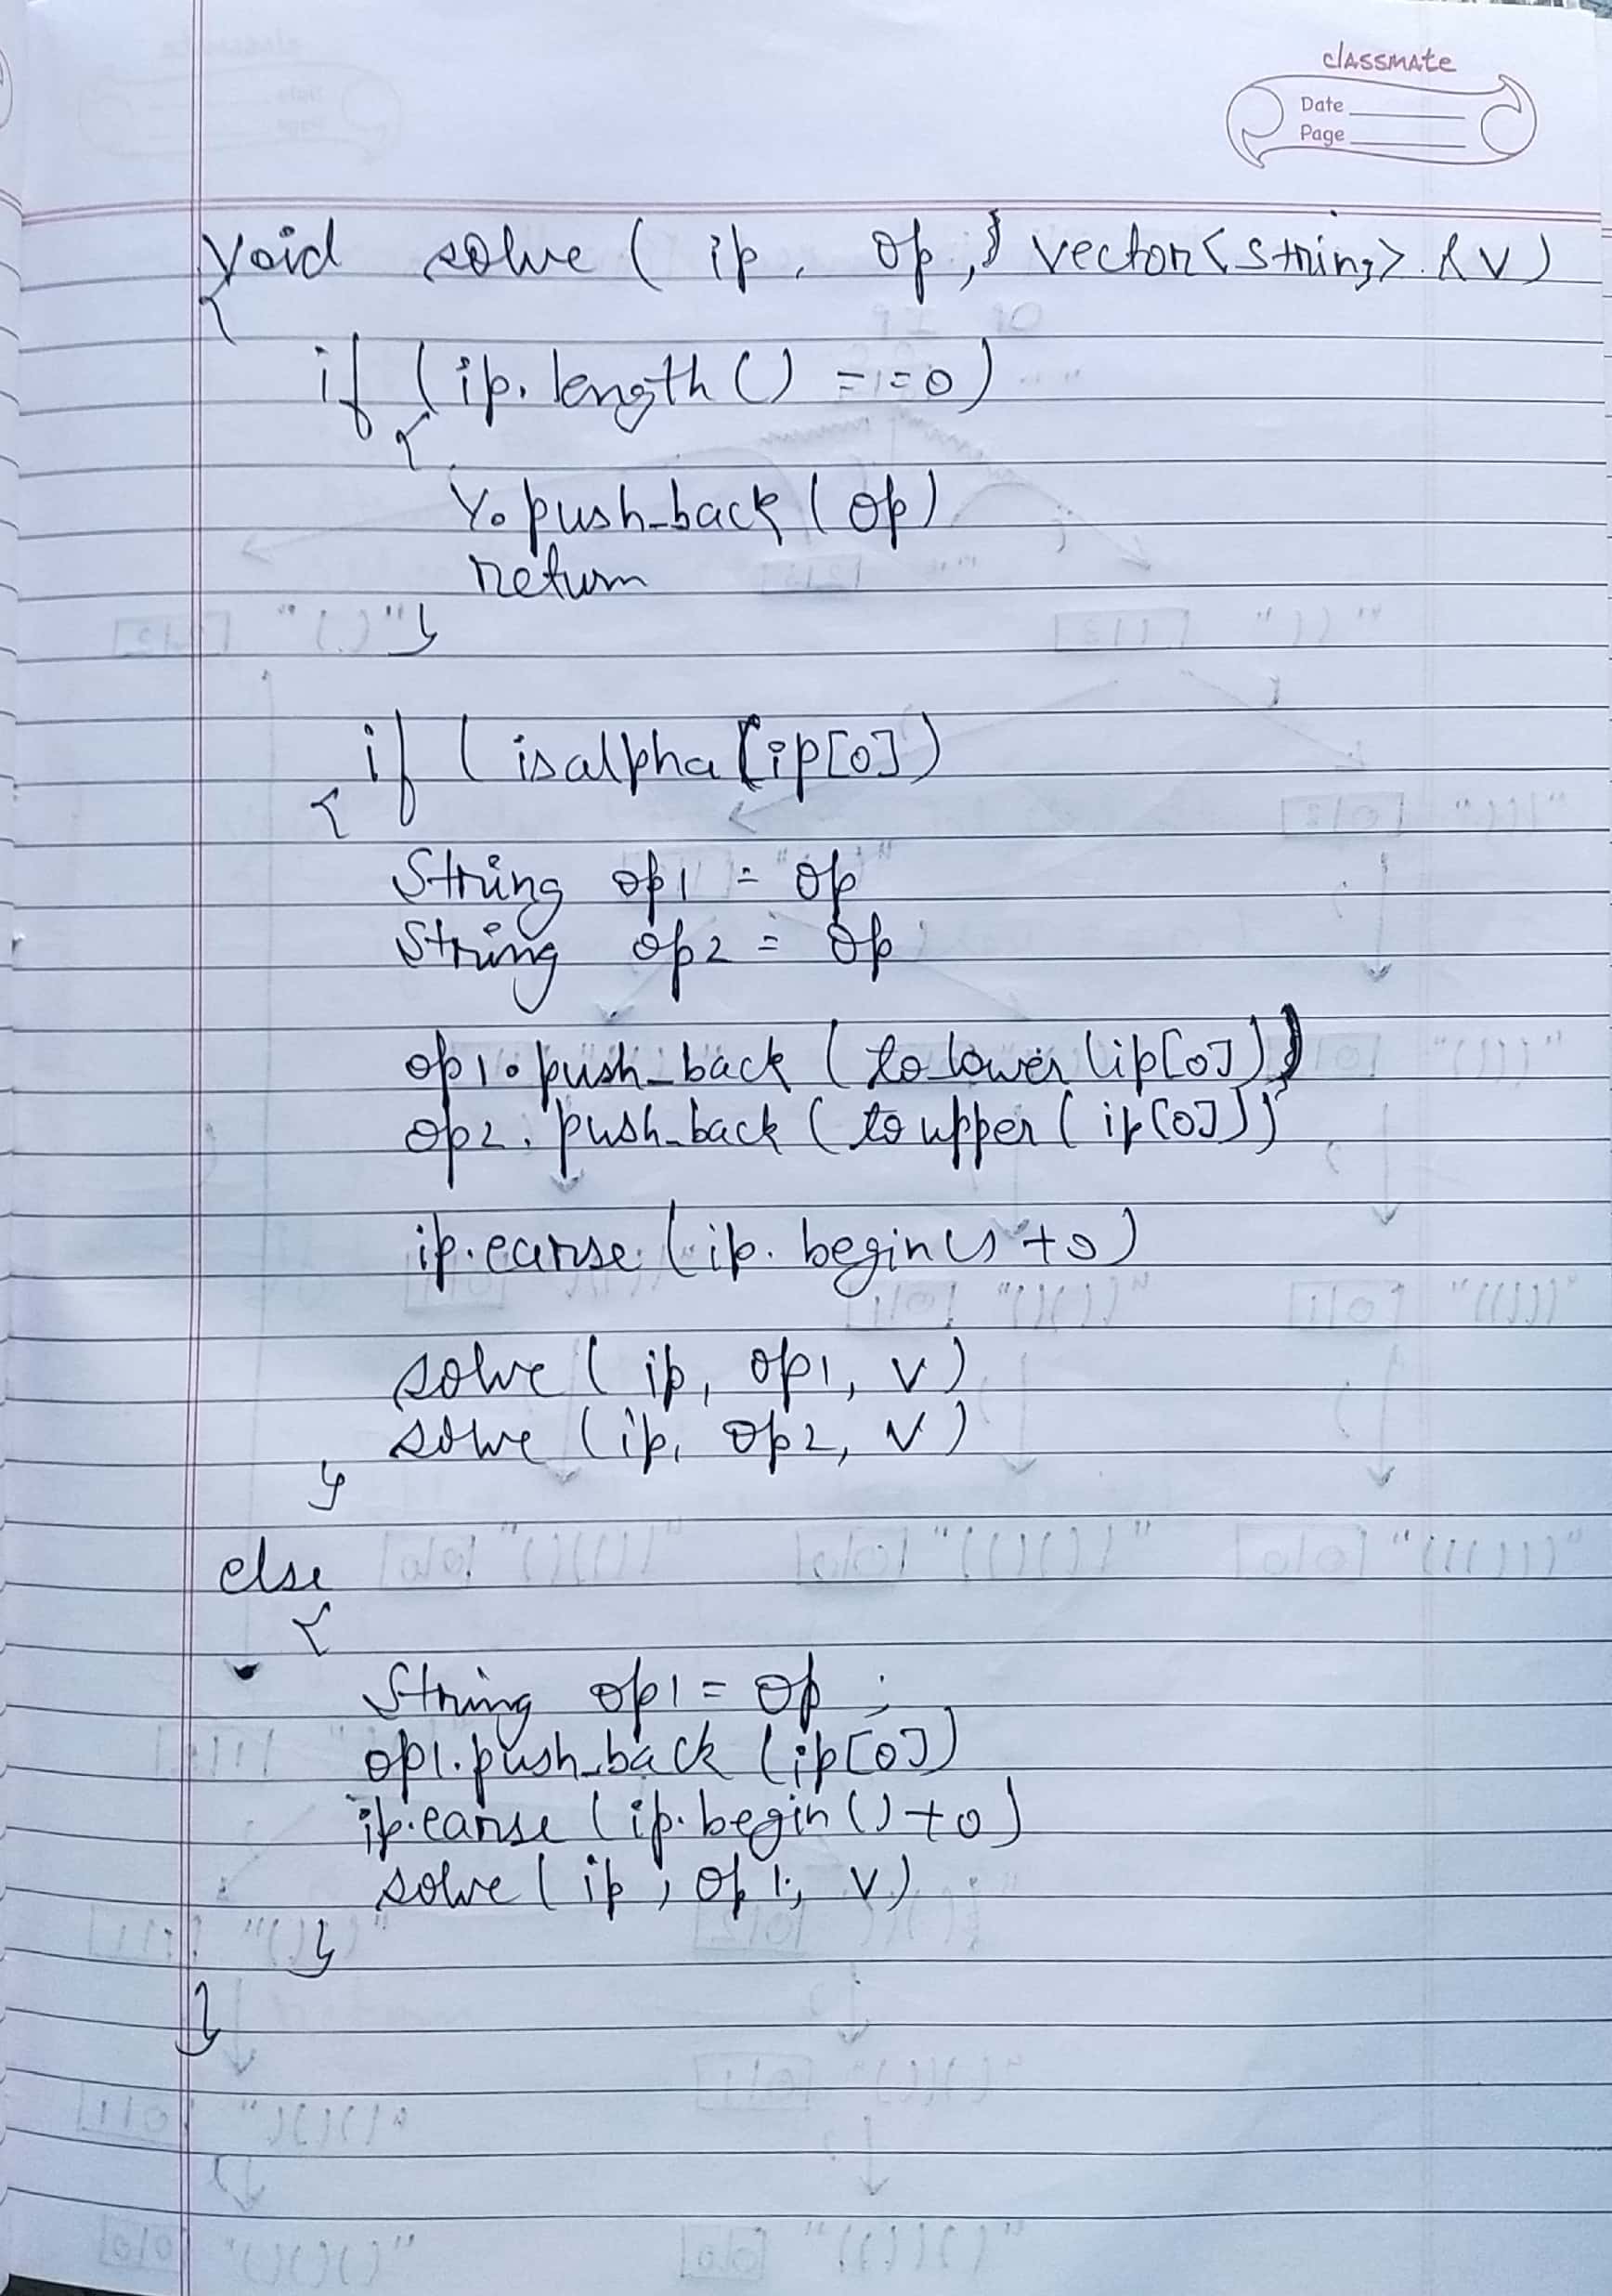 classmate
Date
Page
void solve ( ip, op, vector<string> &v)
{
if (ip.length() == 0)
{
v.push_back(op)
return
}
if ( isalpha(ip[0])
{
String op1 = op
String op2 = op
op1.push_back (to lower (ip[0]))
op2.push_back (to upper (ip[0]))
ip.earse (ip.begin() +0)
solve ( ip, op1, v)
solve (ip, op2, v)
}
else
{
String op1 = op ;
op1.push_back (ip[0])
ip.earse (ip.begin() +0)
solve ( ip, op1, v)
}
}